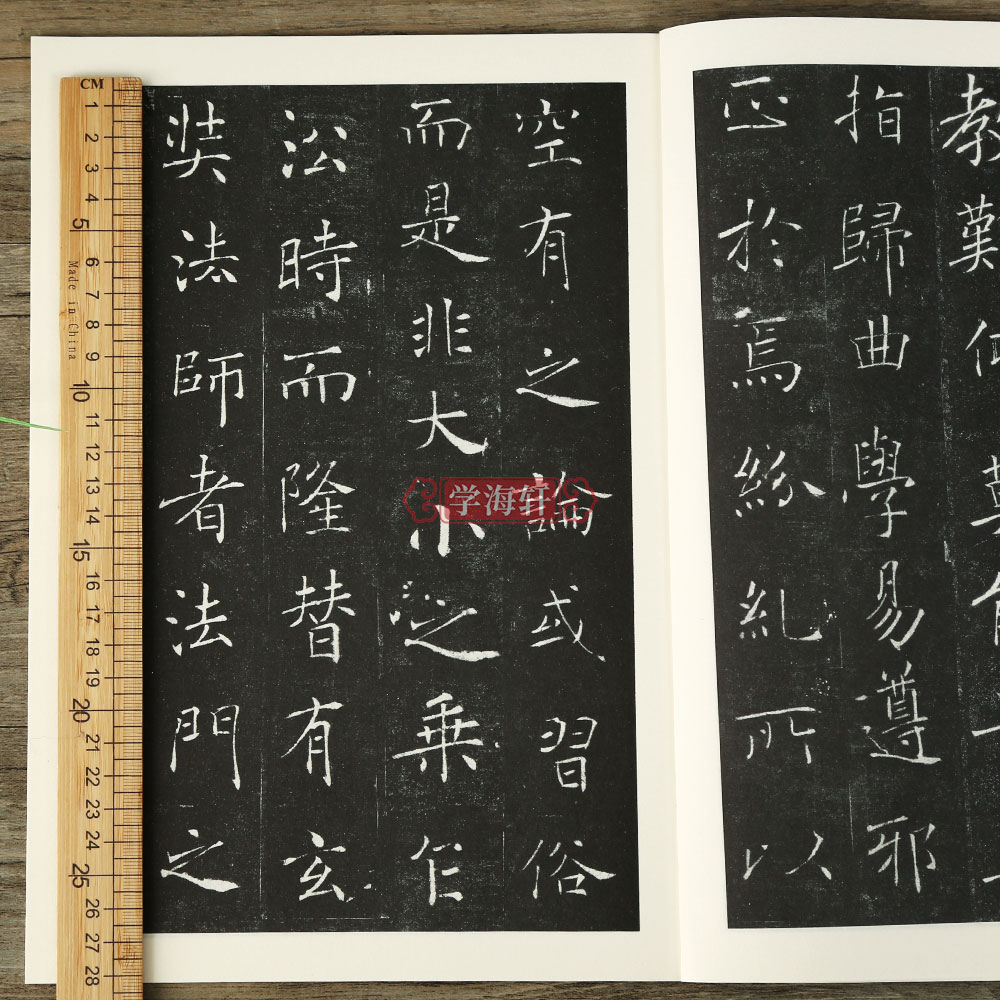 教難仰莫能一
指歸曲學易遵邪
正於焉紛糺所以
空有之論或習俗
而是非大小之乘乍
沿時而隆替有玄
奘法師者法門之
学海轩
CM
1
2
3
4
5
6
7
8
9
10
11
12
13
14
15
16
17
18
19
20
21
22
23
24
25
26
27
28
Made in China